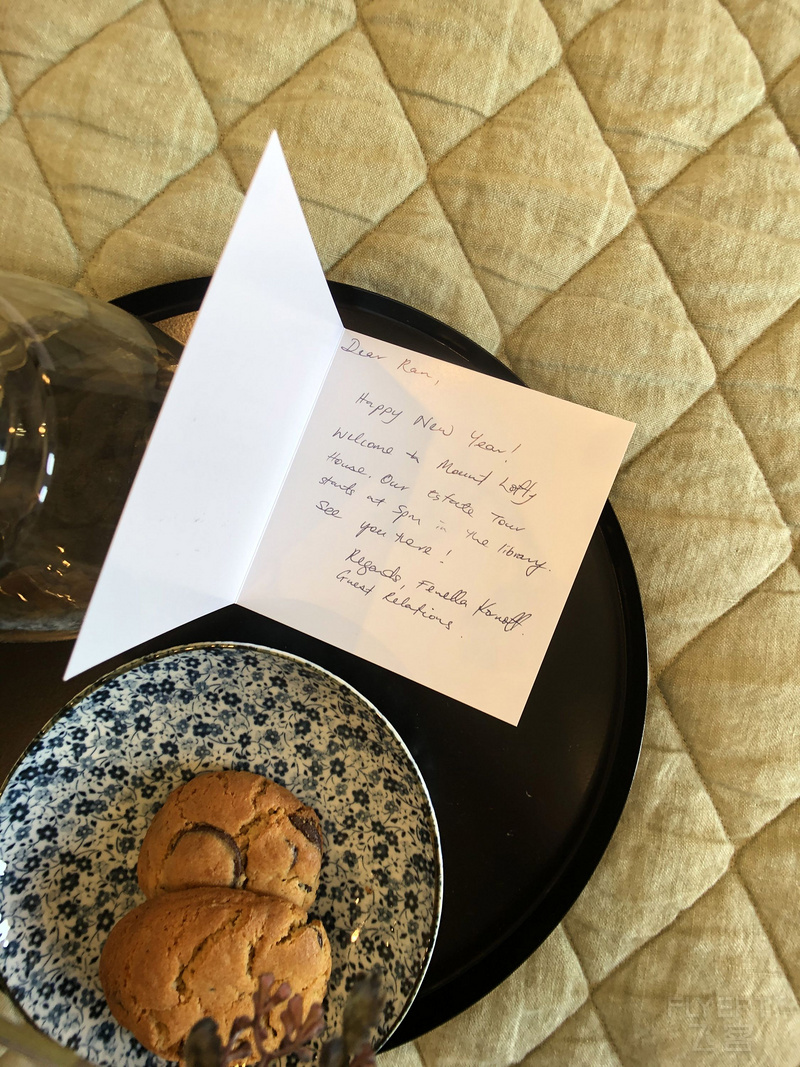 Dear Ran,
Happy New Year!
Welcome to Mount Lofty
House. Our Estate Tour
starts at 5pm in the library.
See you there!
Regards, Fenella Konoff.
Guest Relations.
FLYERT